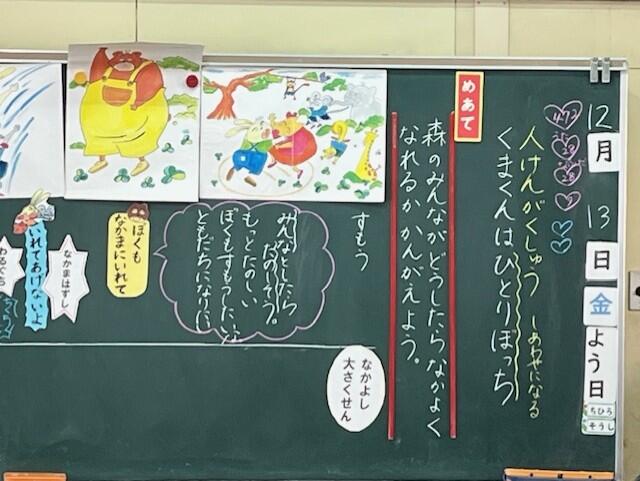 12
月
13
日
金
よう日
ちひろ
そうし
472
人けんがくしゅう しあわせになる
くまくんはひとりぼっち
めあて
森のみんながどうしたらなかよく
なれるかかんがえよう。
すもう
みんなとしたら
たのしそう。
もっとたのしい
ぼくもすもうしたいな
ともだちになりたい
なかよし
大さくせん
ぼくも
なかまにいれて
なかまはずし
いれてあげないよ
わるぐち